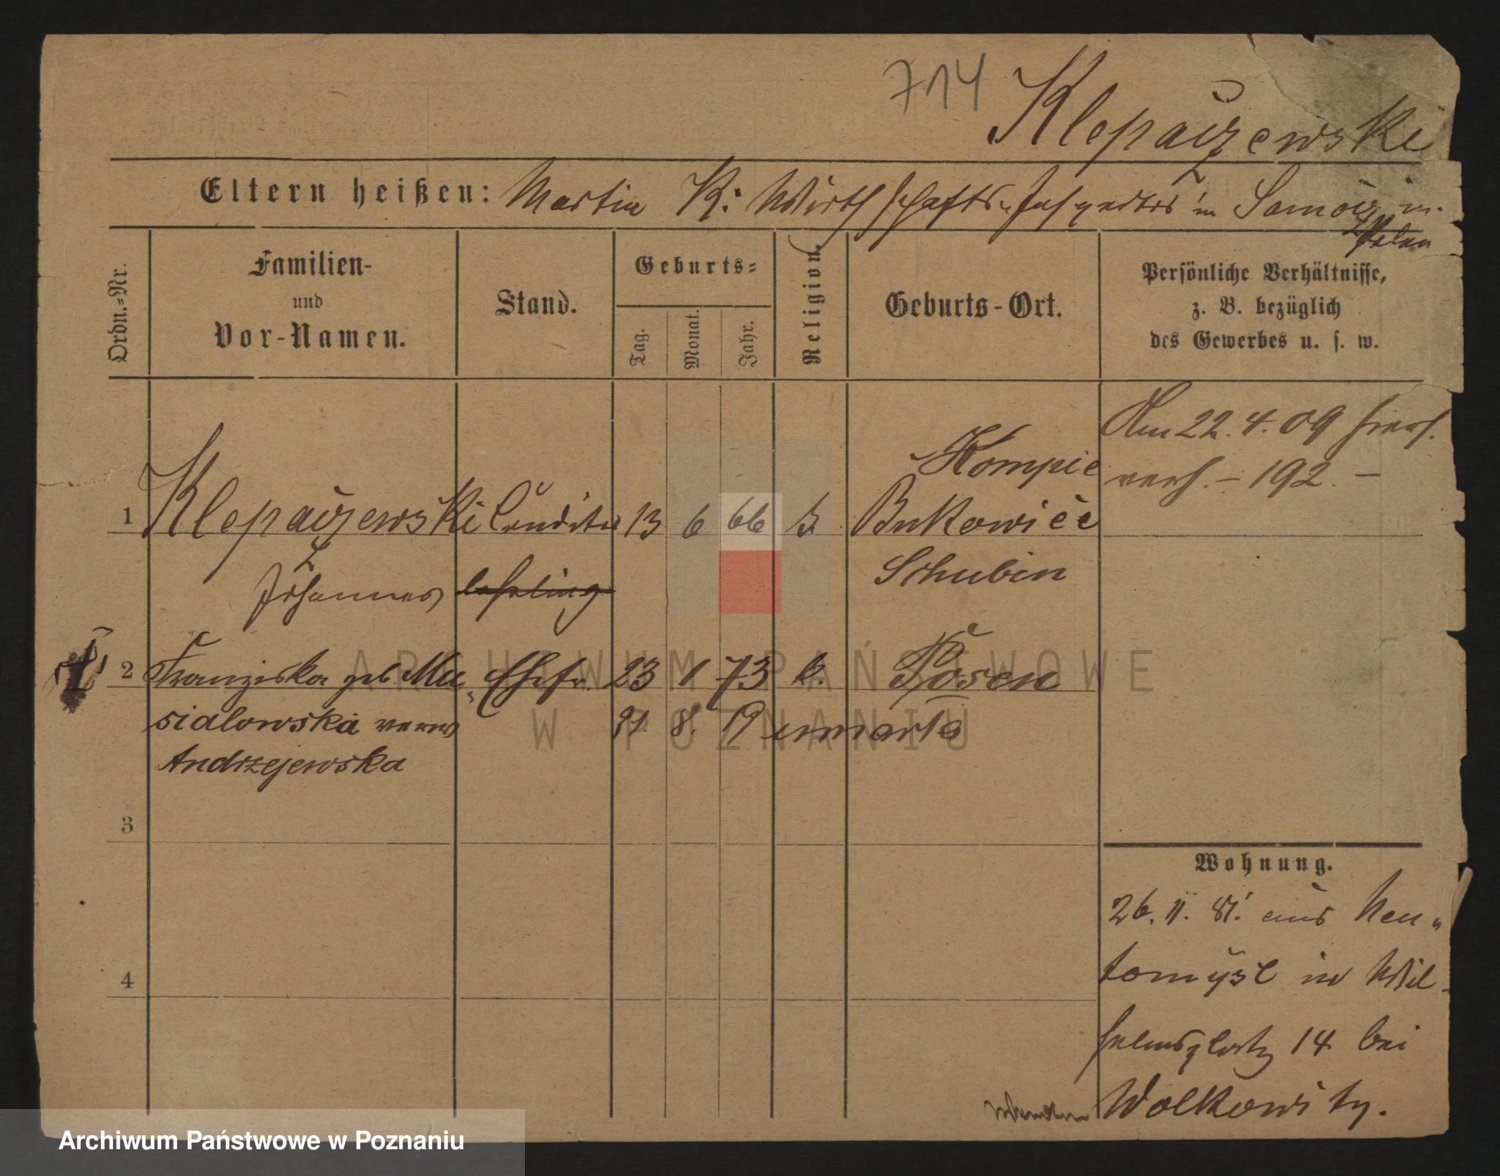 714
Klepaczewski
Eltern heißen: Martin K. Wirthschafts-Inspector in
Ordn.=Nr.
Familien-
und
Vor-Namen.
Stand.
Geburts=
Tag.
Monat.
Jahr.
Religion.
Geburts-Ort.
Persönliche Verhältnisse,
z. B. bezüglich
des Gewerbes u. s. w.
Am 22. 4. 09 hiers.
verh. – 192. –
1 Klepaczewski Conditor 13 6 66 Bukowiec
Johannes lehrling Schubin
2 Franziska geb. Ma- Ehefr 23 1 73 k. Posen
sialowska verw 31 8. 19
Andrzejewska
3
4
Wohnung.
26. 11. 81. aus Neu-
tomysl in Wil-
helmsplatz 14 bei
Wolkowitz.
ARCHIWUM PAŃSTWOWE
W POZNANIU
Archiwum Państwowe w Poznaniu